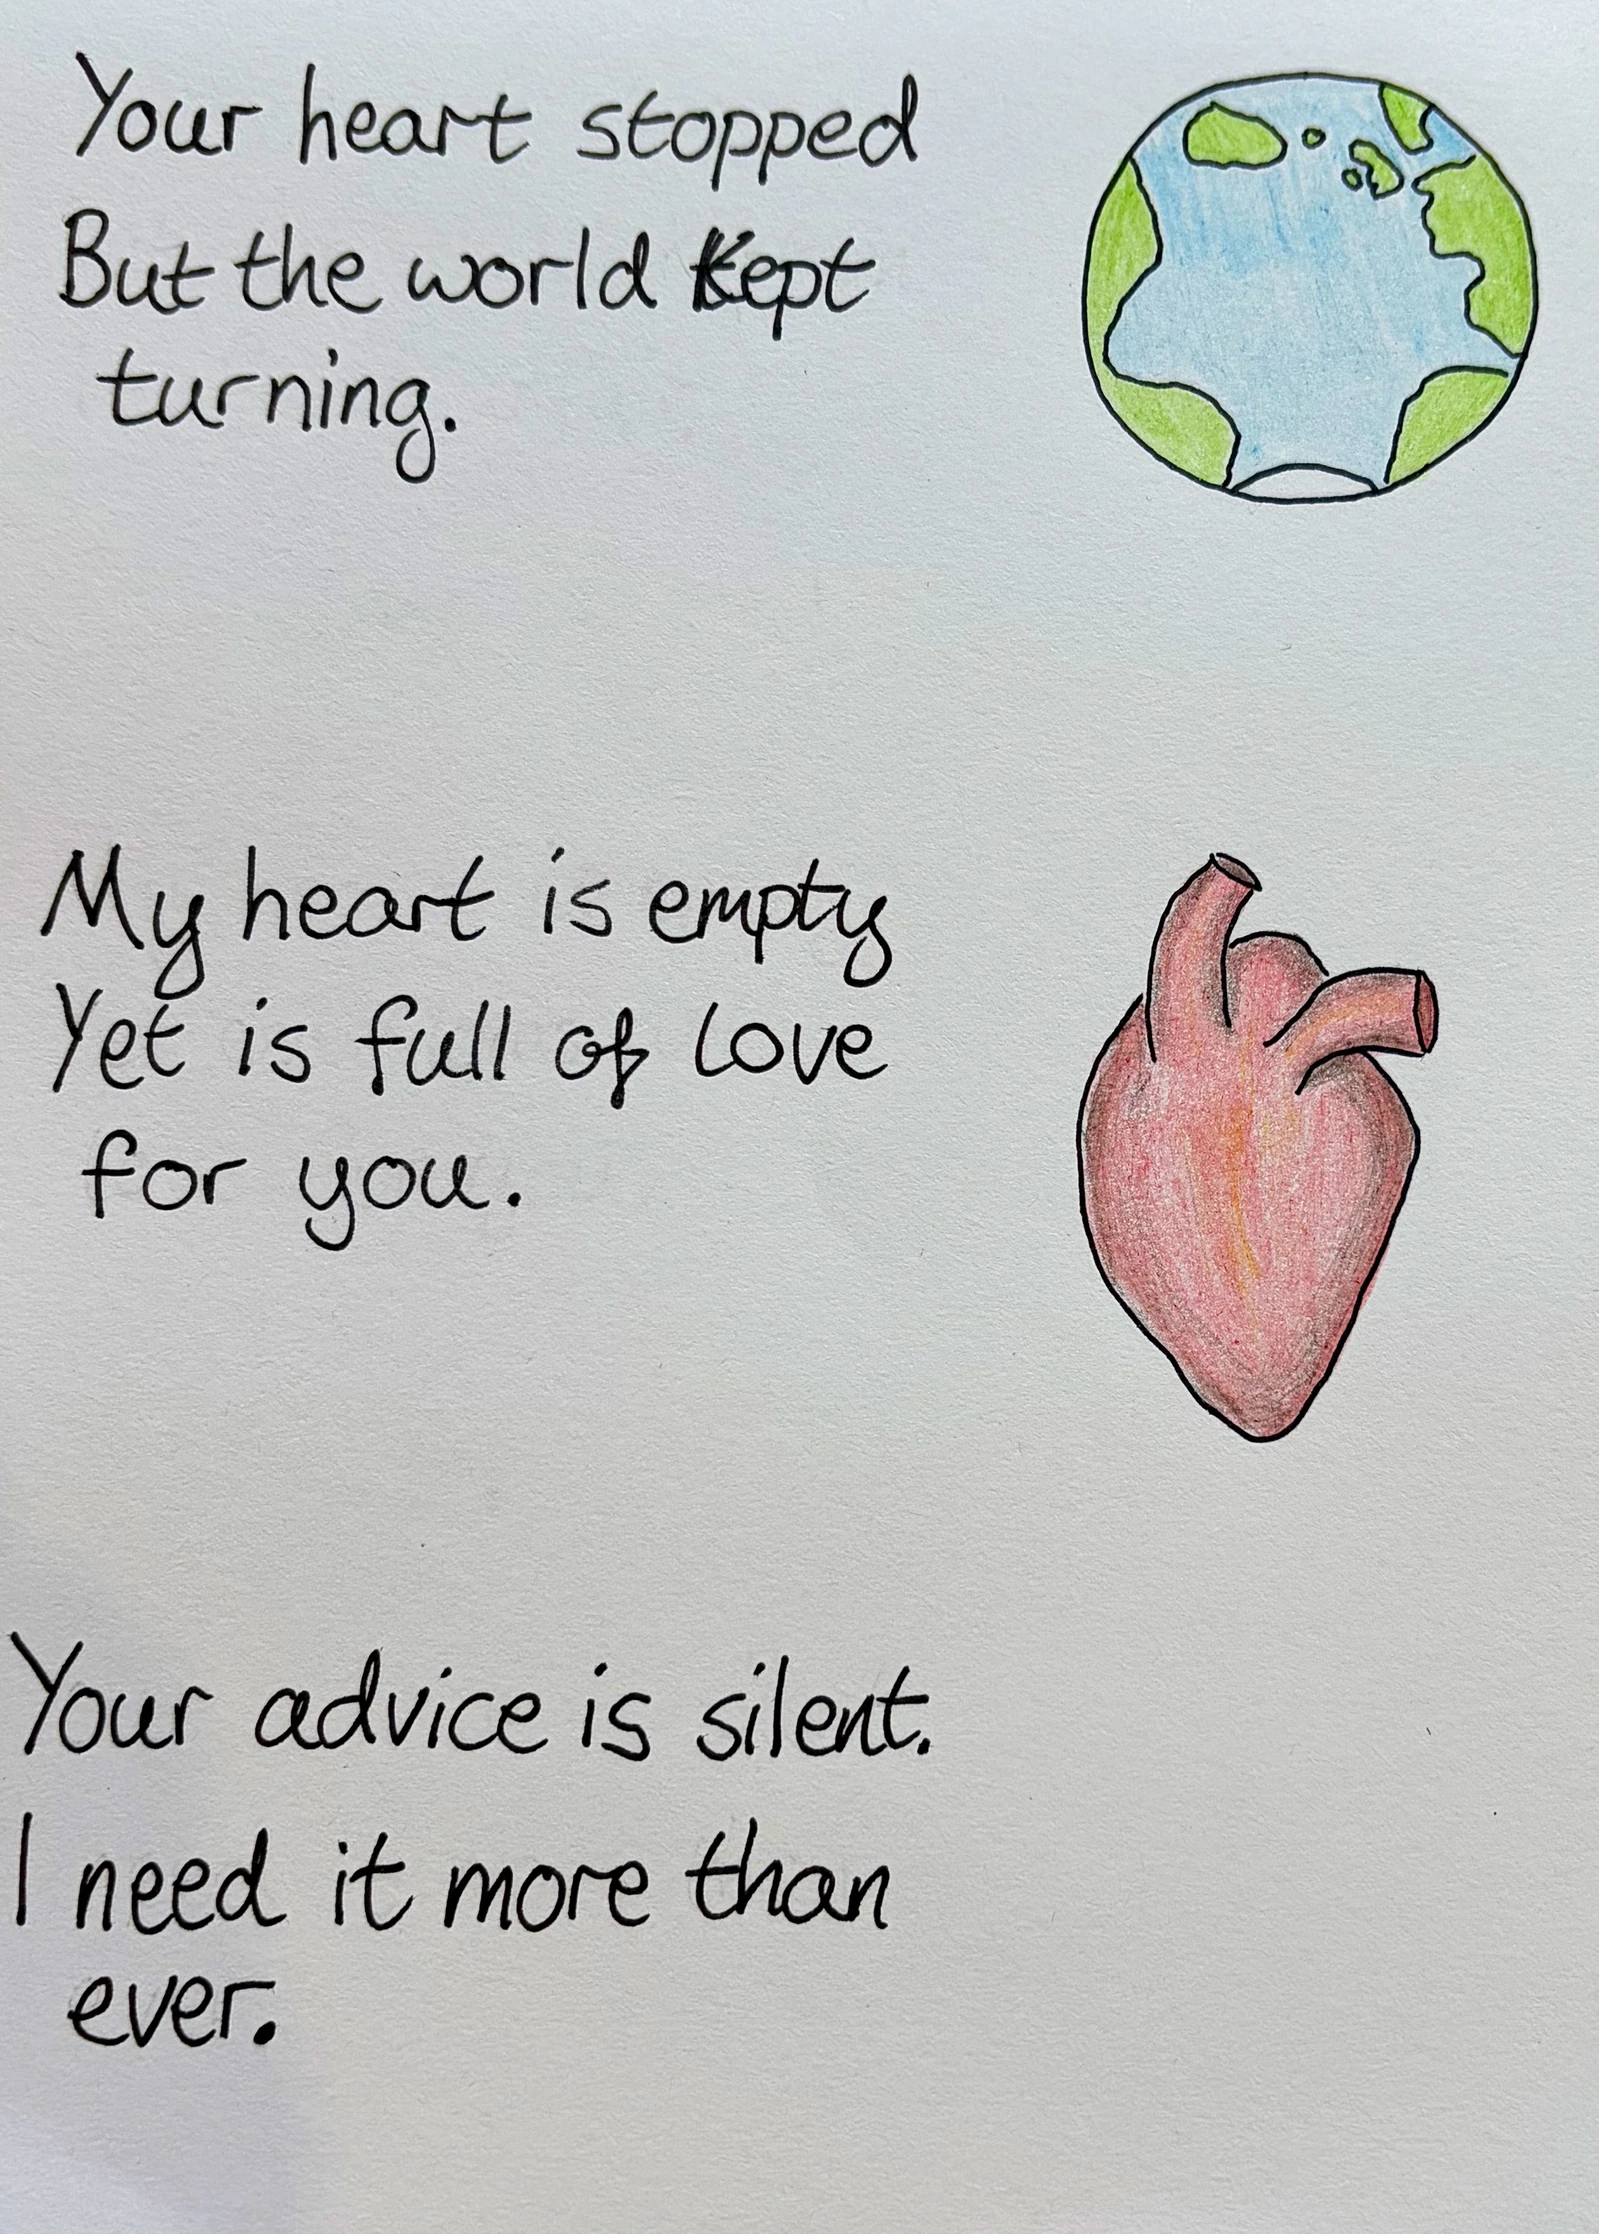 Your heart stopped
But the world kept
turning.
My heart is empty
Yet is full of love
for you.
Your advice is silent.
I need it more than
ever.